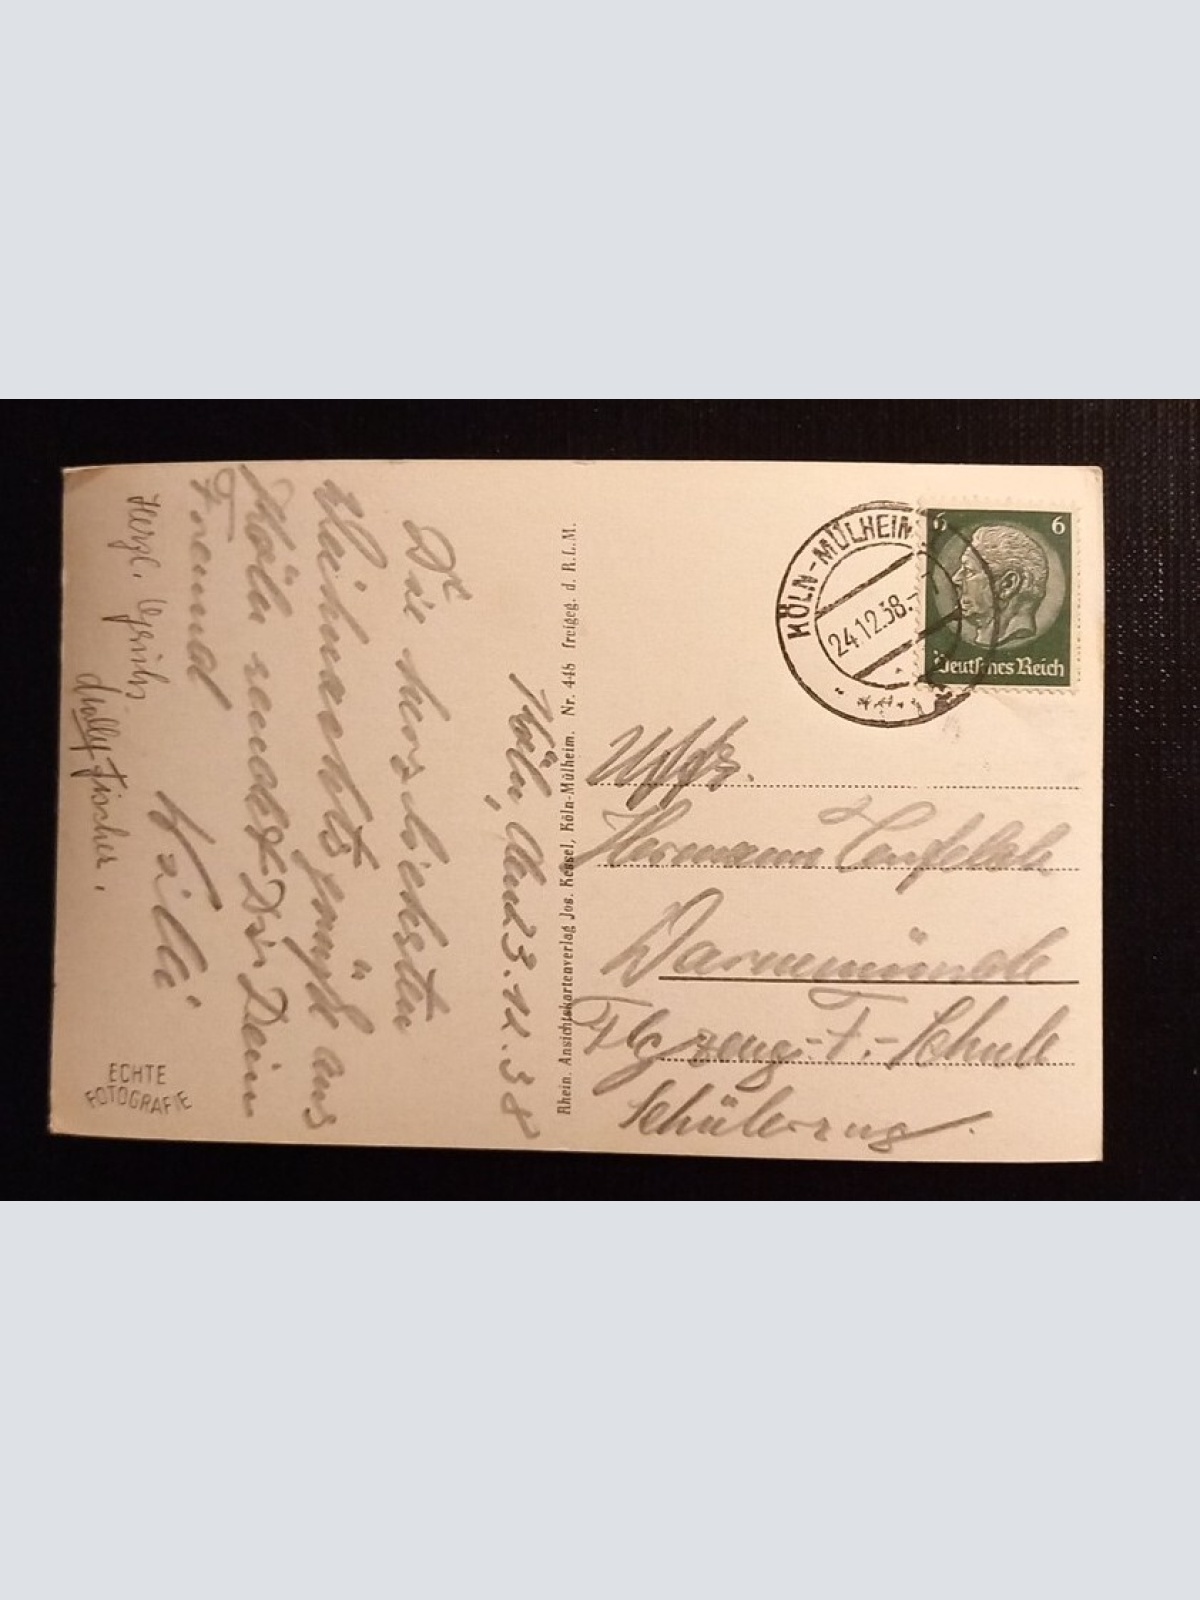 Köln, den 23.12.38
Die herzlichsten
Weihnachtsgrüße aus
Köln sendet Dir Dein
Freund
Willi
Herzl.
Molly Fischer.
ECHTE
FOTOGRAFIE
Rhein. Ansichtskartenverlag Jos. Kessel, Köln-Mülheim. Nr. 446 freigeg. d. R.L.M.
KÖLN-MÜLHEIM
24.12.38.-
6 6
Deutsches Reich
Uffz.
Hermann
Warnemünde
Flgzeug.-F.-Schule
Schülerzug.